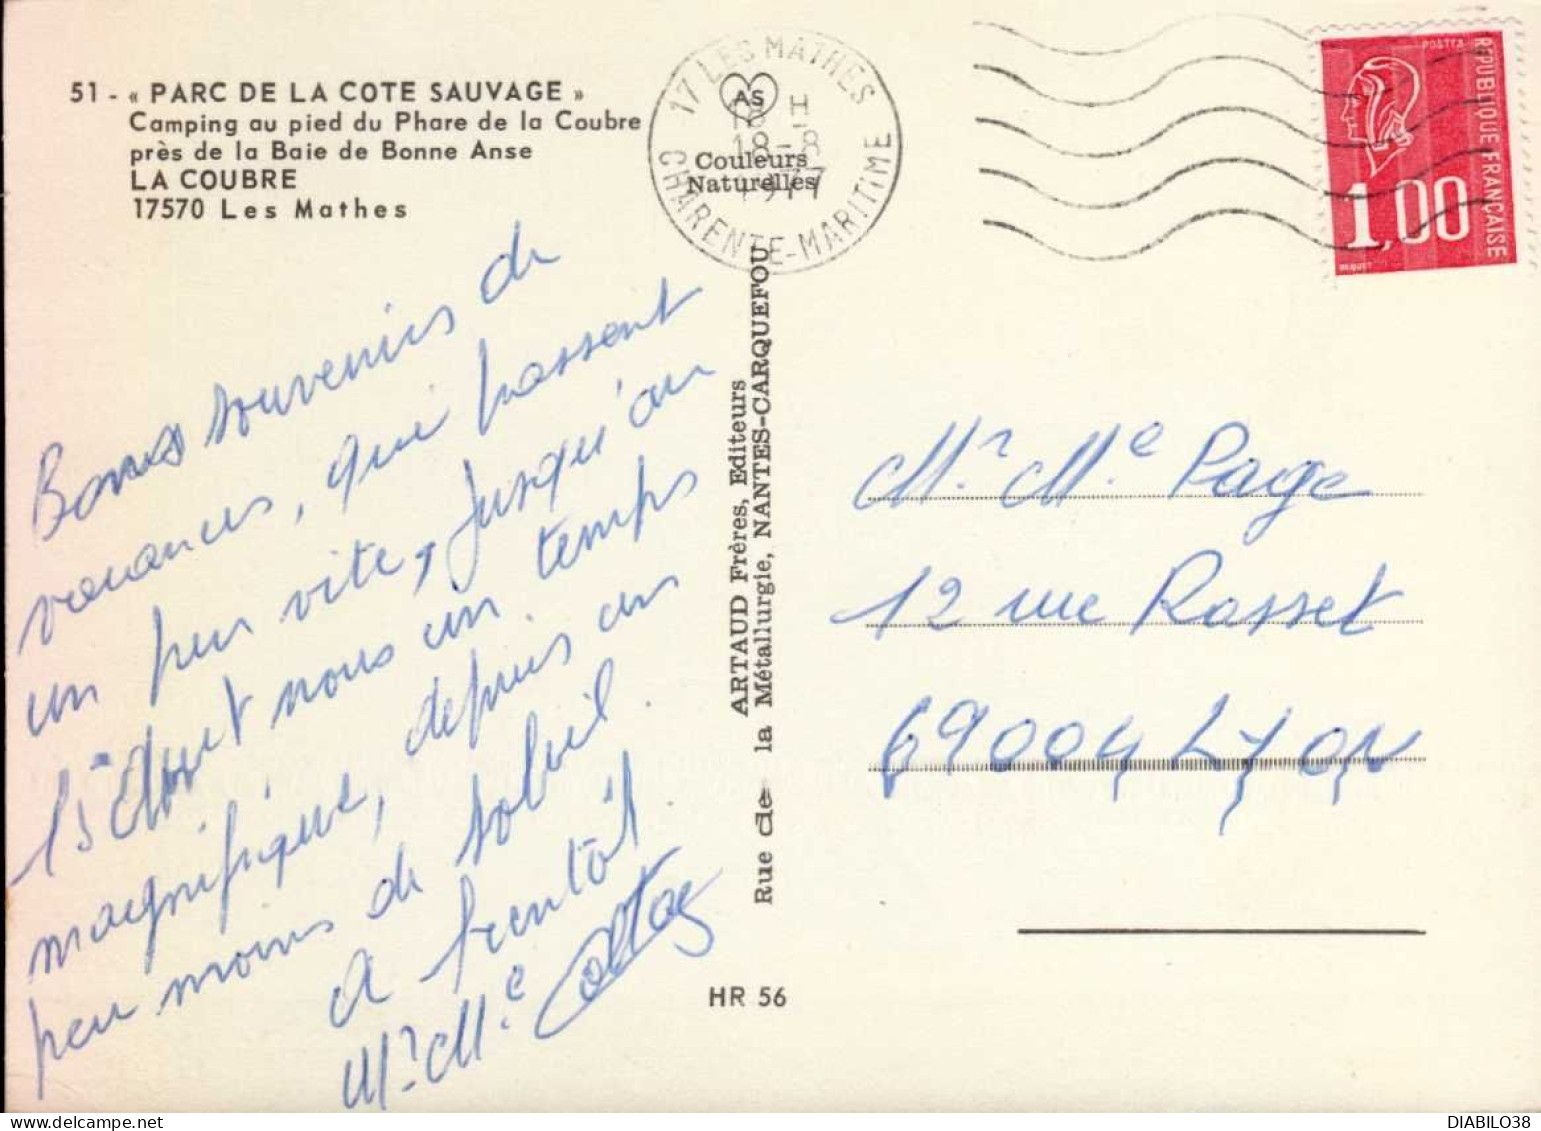 51 - « PARC DE LA COTE SAUVAGE »
Camping au pied du Phare de la Coubre
près de la Baie de Bonne Anse
LA COUBRE
17570 Les Mathes
AS
Couleurs
Naturelles
17 LES MATHES
18-8
1977
CHARENTE-MARITIME
POSTES
REPUBLIQUE FRANÇAISE
1,00
BEQUET
Bons souvenirs de
vacances, qui passent
un peu vite, jusqu'au
15 Aout nous un temps
magnifique, depuis un
peu moins de soleil.
A bientôt
Mr Me
ARTAUD Frères, Editeurs
Rue de la Métallurgie, NANTES-CARQUEFOU
Mr. Me. Page
12 rue Rosset
69004 Lyon
HR 56
DIABILO38